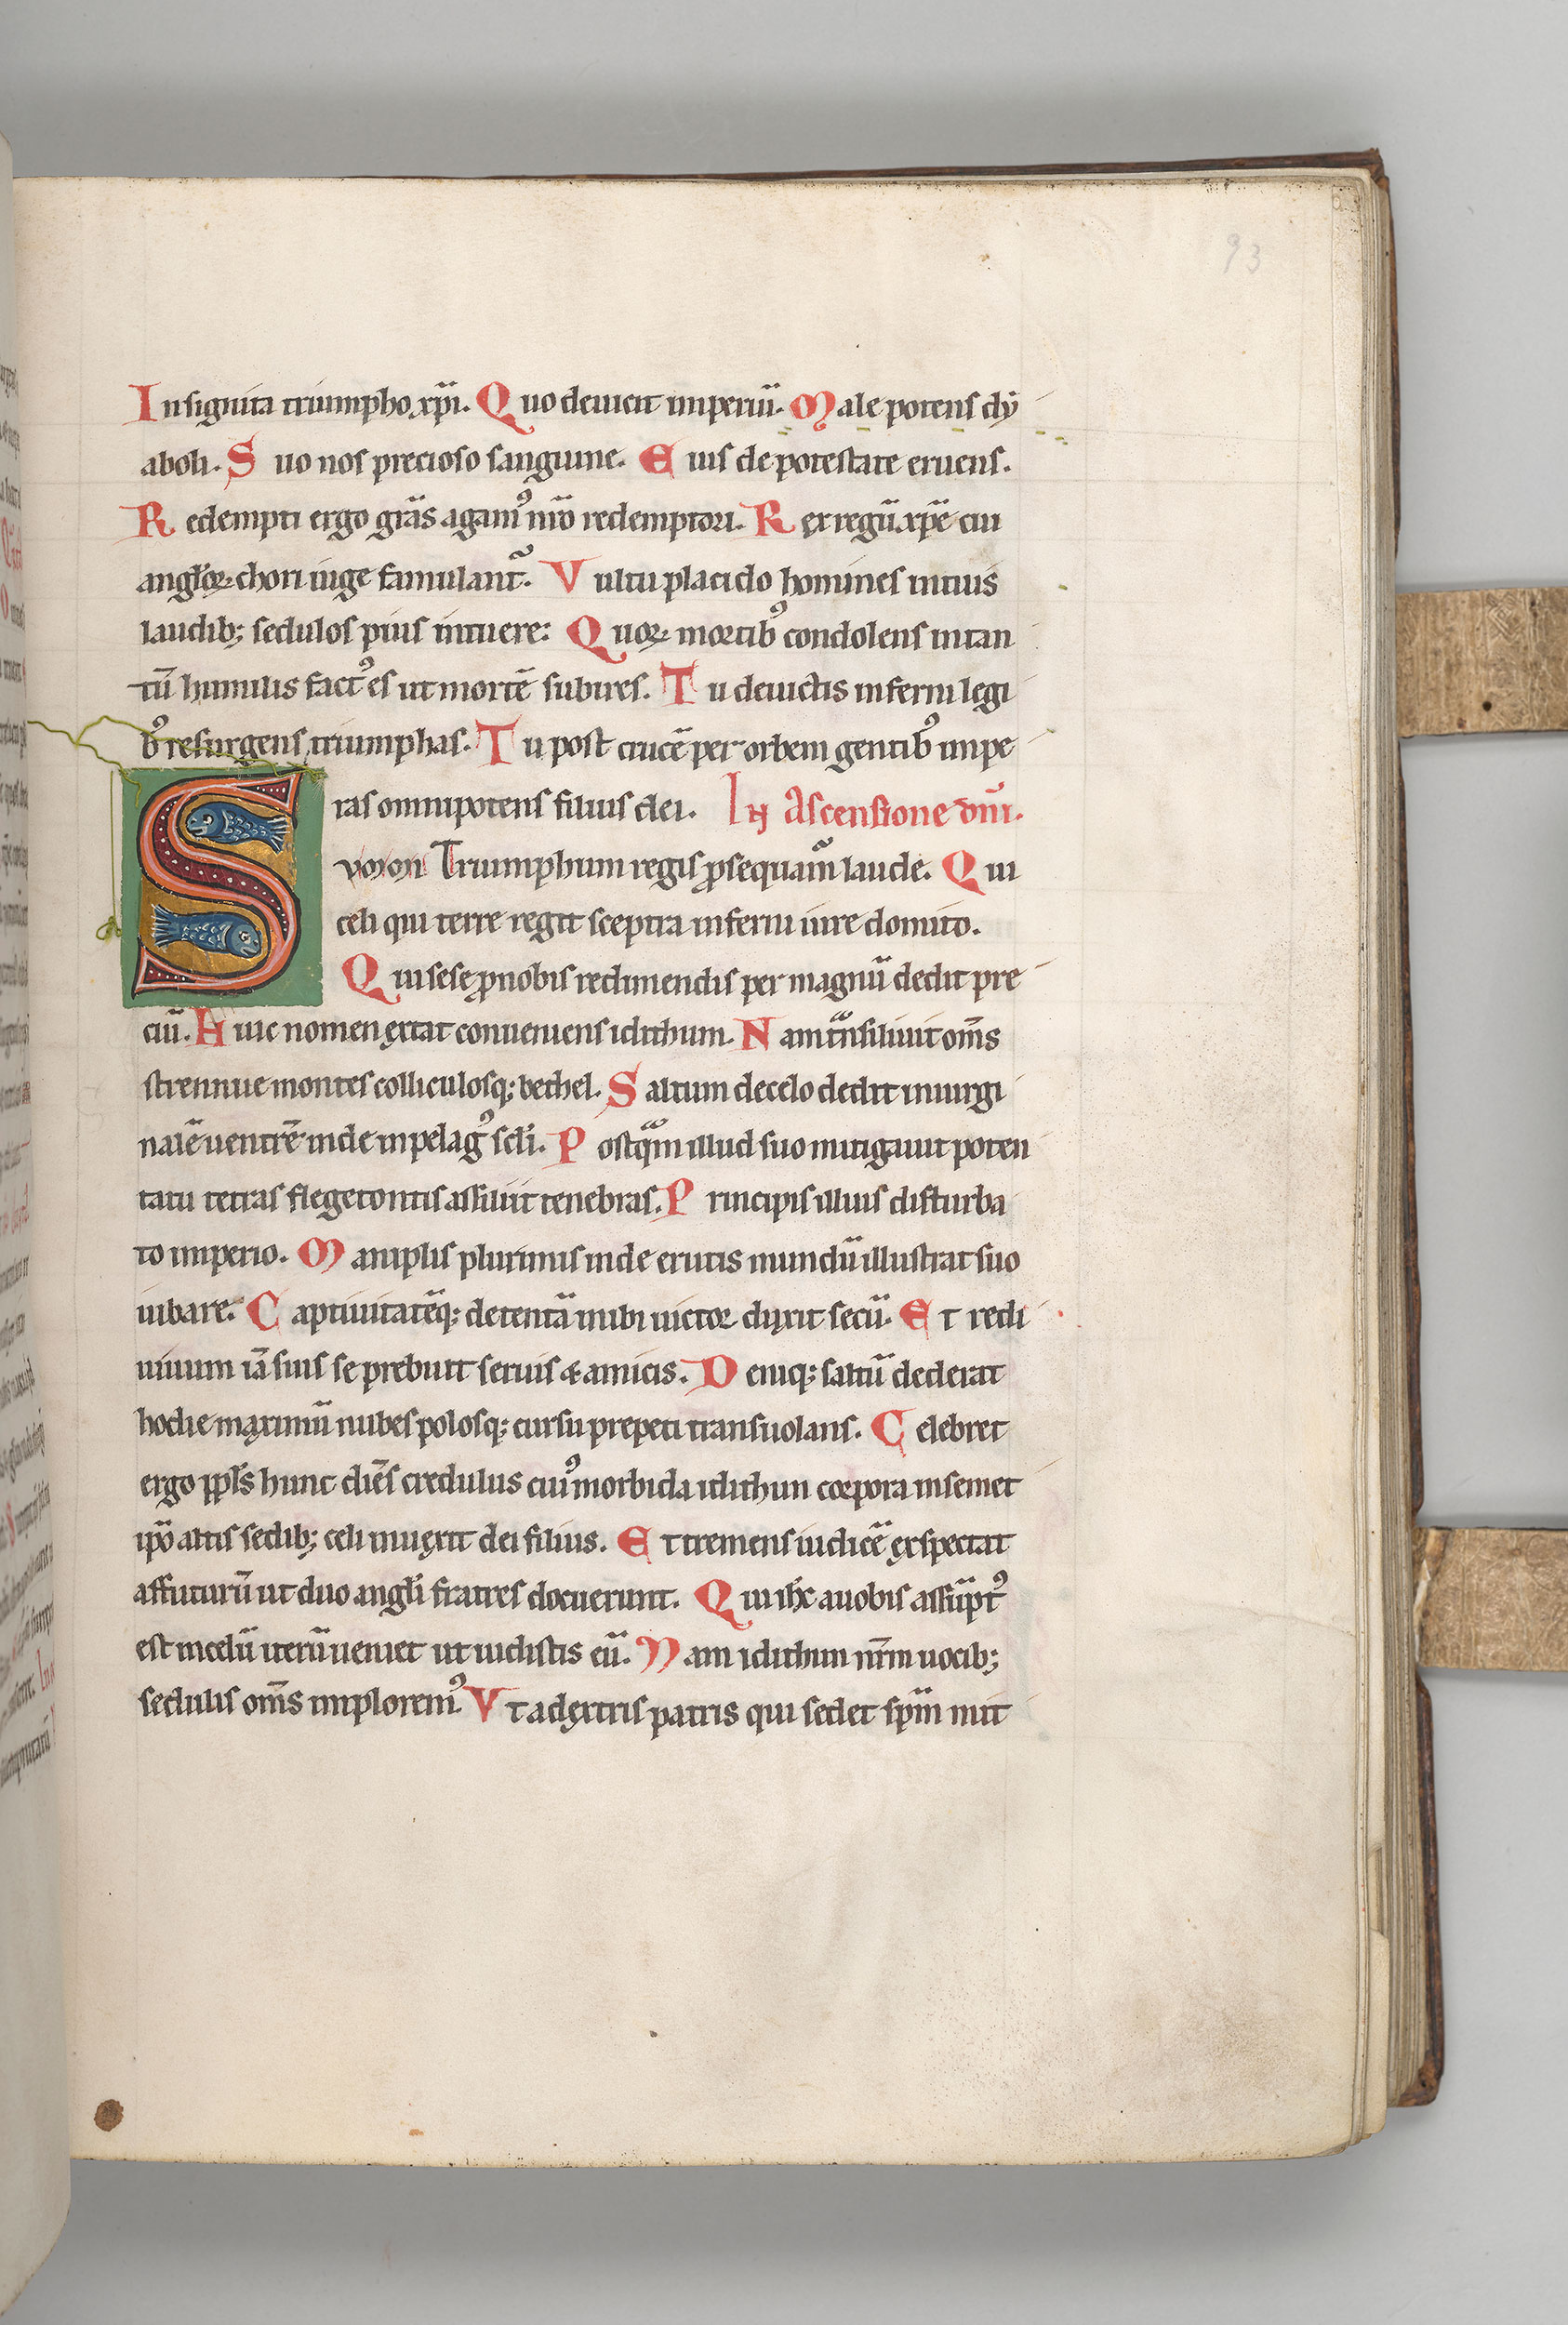 93
Insignita triumpho xp̄i. Quo deuicit imperiū. Male potens dẏ
aboli. Suo nos precioso sanguine. Eius de potestate eruens.
Redempti ergo gr̄as agam᷒ nr̄o redemptori. Rex regū xp̄e cui
angl̄oꝝ chori iuge famulant᷑. Vultu placido homines intuis
laudib; sedulos pius intuere: Quoꝝ mortib᷒ condolens intan
tū humilis fact᷒ es ut mortē subires. Tu deuictis inferni legi
b᷒ resurgens triumphas. Tu post crucē per orbem gentib᷒ impe
ras omnipotens filius dei. In Ascensione dn̄i.
Svmmi Triumphum regis ꝓsequam᷑ laude. Qui
celi qui terre regit sceptra inferni iure domito.
Qui sese ꝓ nobis redimendis per magnū dedit pre
ciū. Huic nomen extat conueniens idithum. Nam tᷓnsiliuit om̄s
strennue montes colliculosq; bethel. Saltum de celo dedit in uirgi
nalē uentrē inde in pelag᷒ scl̄i. Postqᷓm illud suo mitigauit poten
tatu tetras flegetontis assiliit tenebras. Principis illius disturba
to imperio. Maniplis plurimis inde erutis mundū illustrat suo
iubare. Captiuitatēq; detentā inibi uictor duxit secū. Et redi
uiuum iā suis se prebuit seruis & amicis. Deniq; saltū dederat
hodie maximū nubes polosq; cursu prepeti transuolans. Celebret
ergo ppl̄s hunc diē credulus cui᷒ morbida idithun corpora in semet
ip̄o altis sedib; celi inuexit dei filius. Et tremens iudicē exspectat
affuturū ut duo angl̄i fratres docuerunt. Qui ih̄c a uobis assūpt᷒
est in celū iterū ueniet ut uidistis eū. Nam idithum nr̄m uocib;
sedulis om̄s implorem᷒ Vt a dextris patris qui sedet sp̄m mit